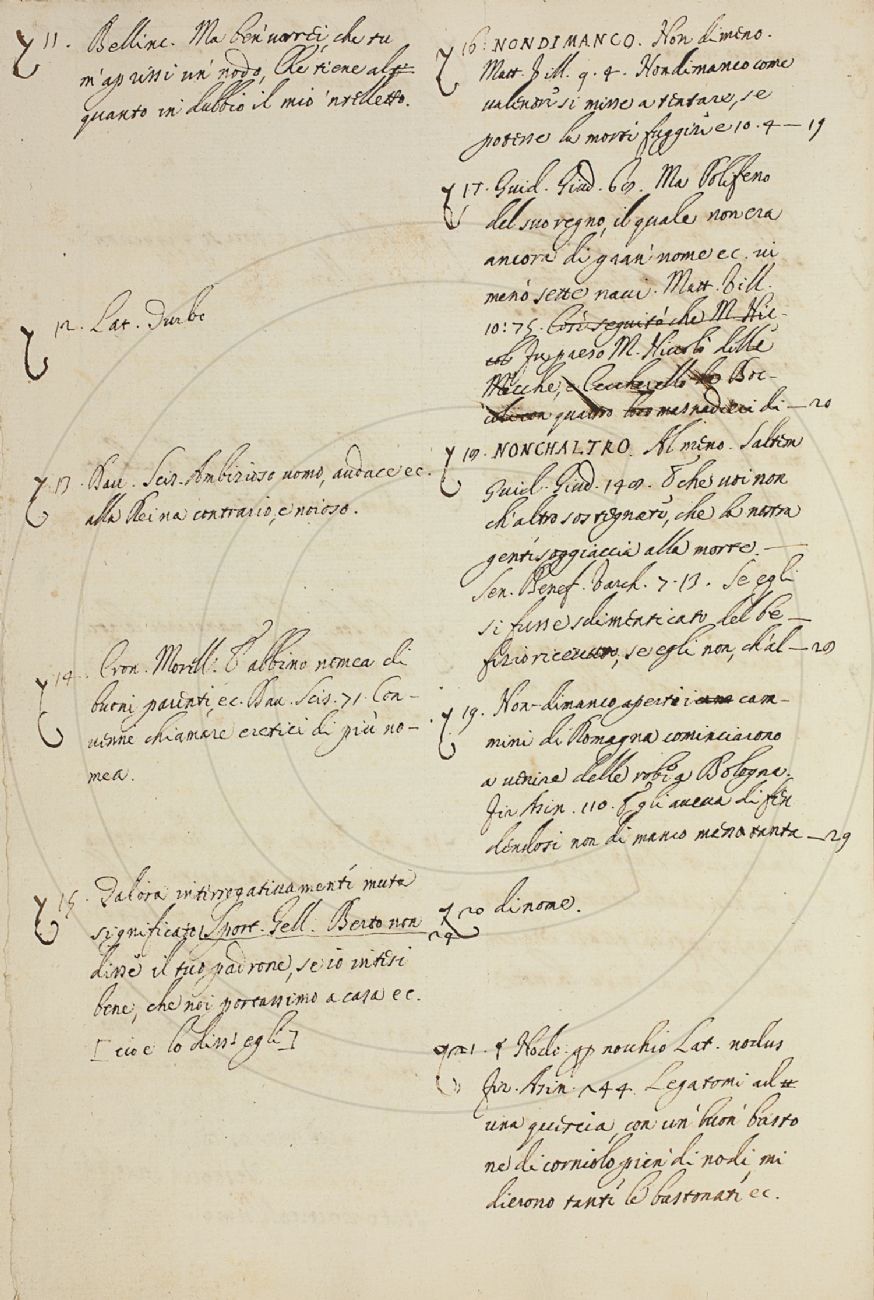 11. Bellinc. Ma ben' vorrei, che tu
m'aprissi un' nodo, Che tiene al=
quanto in dubbio il mio 'ntelletto.
12. Lat. Turbe
13. Dav. Scis. Ambizioso uomo, audace ec.
alla Reina contrario, e noioso.
14. Cron. Morell. E abbino nomea di
buoni parenti, ec. Dav. Scis. 71. Con-
venne chiamare eretici di più no-
mea.
15. Talora interrogativamente muta
significato. Sport. Gell. Berto non
disse il tuo padrone, se io intesi
bene, che noi portassimo a casa ec.
[cioè lo diss' egli]
16. NONDIMANCO. Non dimeno.
Matt. Vill. 9. 4. Nondimanco come
si misse a tentare, se
potesse la morte fuggire e 10. 4 — 19
17. Guid. Giud. 69. Ma Polifeno
del suo regno, il quale non era
ancora di gran' nome ec. vi
menò sette navi. Matt. Vill.
10: 75. Così seguitò che M. Nic-
colò fu preso M. Niccolò delle
Mecche, e Ceccherello Boc-
quattro loro masnadieri di — 20
18. NONCHALTRO. Almeno. Saltem
Guid. Giud. 149. E che voi non
ch' altro sostegnate, che la nostra
gente soggiaccia alla morte. —
Sen. Benef. Varch. 7. 13. Se egli
si fusse sdimenticato del be —
fizio ricevuto, se egli non, ch' al — 28
19. Non-dimanco aperti i cam-
mini di Romagna cominciarono
a venire della roba a Bologna.
Fir. Asin. 110. Egli aveva difen
dendosi non di manco menò tanta — 29
20 di nome.
29
21. § Nodo. per nocchio Lat. nodus
Fir. Asin. 244. Legatomi ad=
una quercia, con un' buon' basto
ne di corniolo pien' di nodi, mi
dierono tante le bastonate ec.